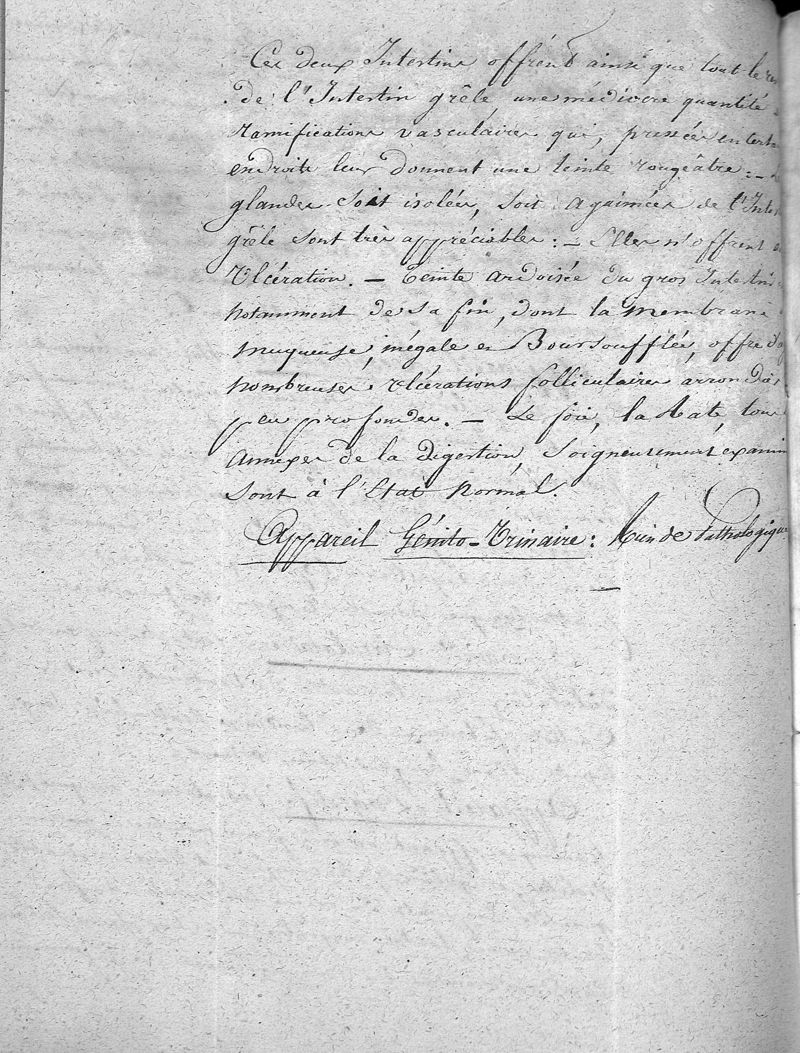 Ces deux Intestins offrent ainsi que tout le
de l'Intestin grêle, une médiocre quantité
ramifications vasculaires qui, pressées en certa
endroits leur donnent une teinte rougeâtre : —
glandes soit isolées, soit agaimées de l'Intes
grêle sont très appréciables : — Elles n'offrent
Ulcération. — Teinte ardoisée du gros Intestin
notamment de sa fin, dont la membrane
muqueuse, inégale et Boursoufflée, offre
nombreuses ulcérations folliculaires arrondies
peu profondes. — Le foie, la Rate, tous
annexes de la digestion, soigneusement examin
sont à l'Etat normal.
Appareil Génito-Urinaire : Rien de Pathologique
—